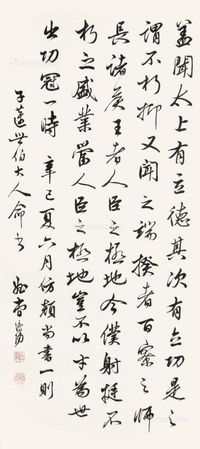 蓋聞太上有立德其次有立功是之
謂不朽抑又聞之端揆者百寮之師
長諸侯王者人臣之極地今僕射挺不
朽之盛業當人臣之極地豈不以才為世
出功冠一時 辛巳夏六月仿顏尚書一則
子蓮世伯大人命書